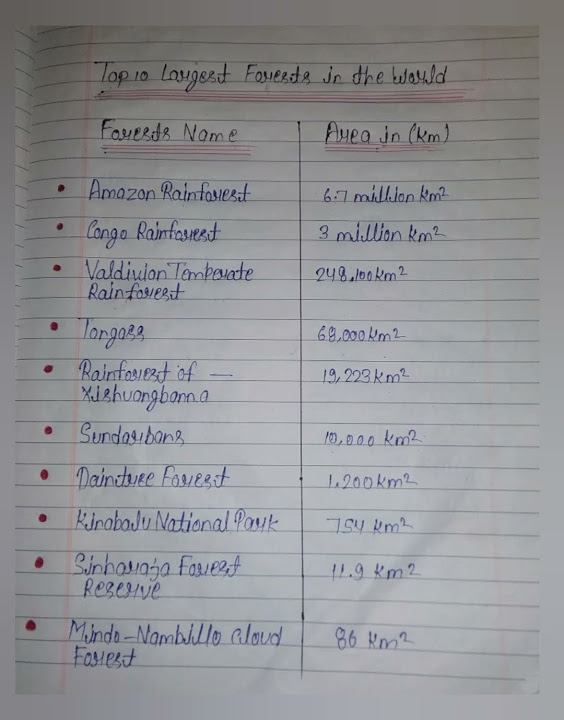 Top 10 Largest Forests in the World
Forests Name Area in (Km)
• Amazon Rainforest 6.7 million Km²
• Congo Rainforest 3 million Km²
• Valdivian Temperate 248,100 Km²
Rainforest
• Tongass 68,000 Km²
• Rainforest of — 19,223 Km²
Xishuangbanna
• Sundarbans 10,000 Km²
• Daintree Forest 1,200 Km²
• Kinabalu National Park 754 Km²
• Sinharaja Forest 11.9 Km²
Reserve
• Mindo-Nambillo Cloud 86 Km²
Forest